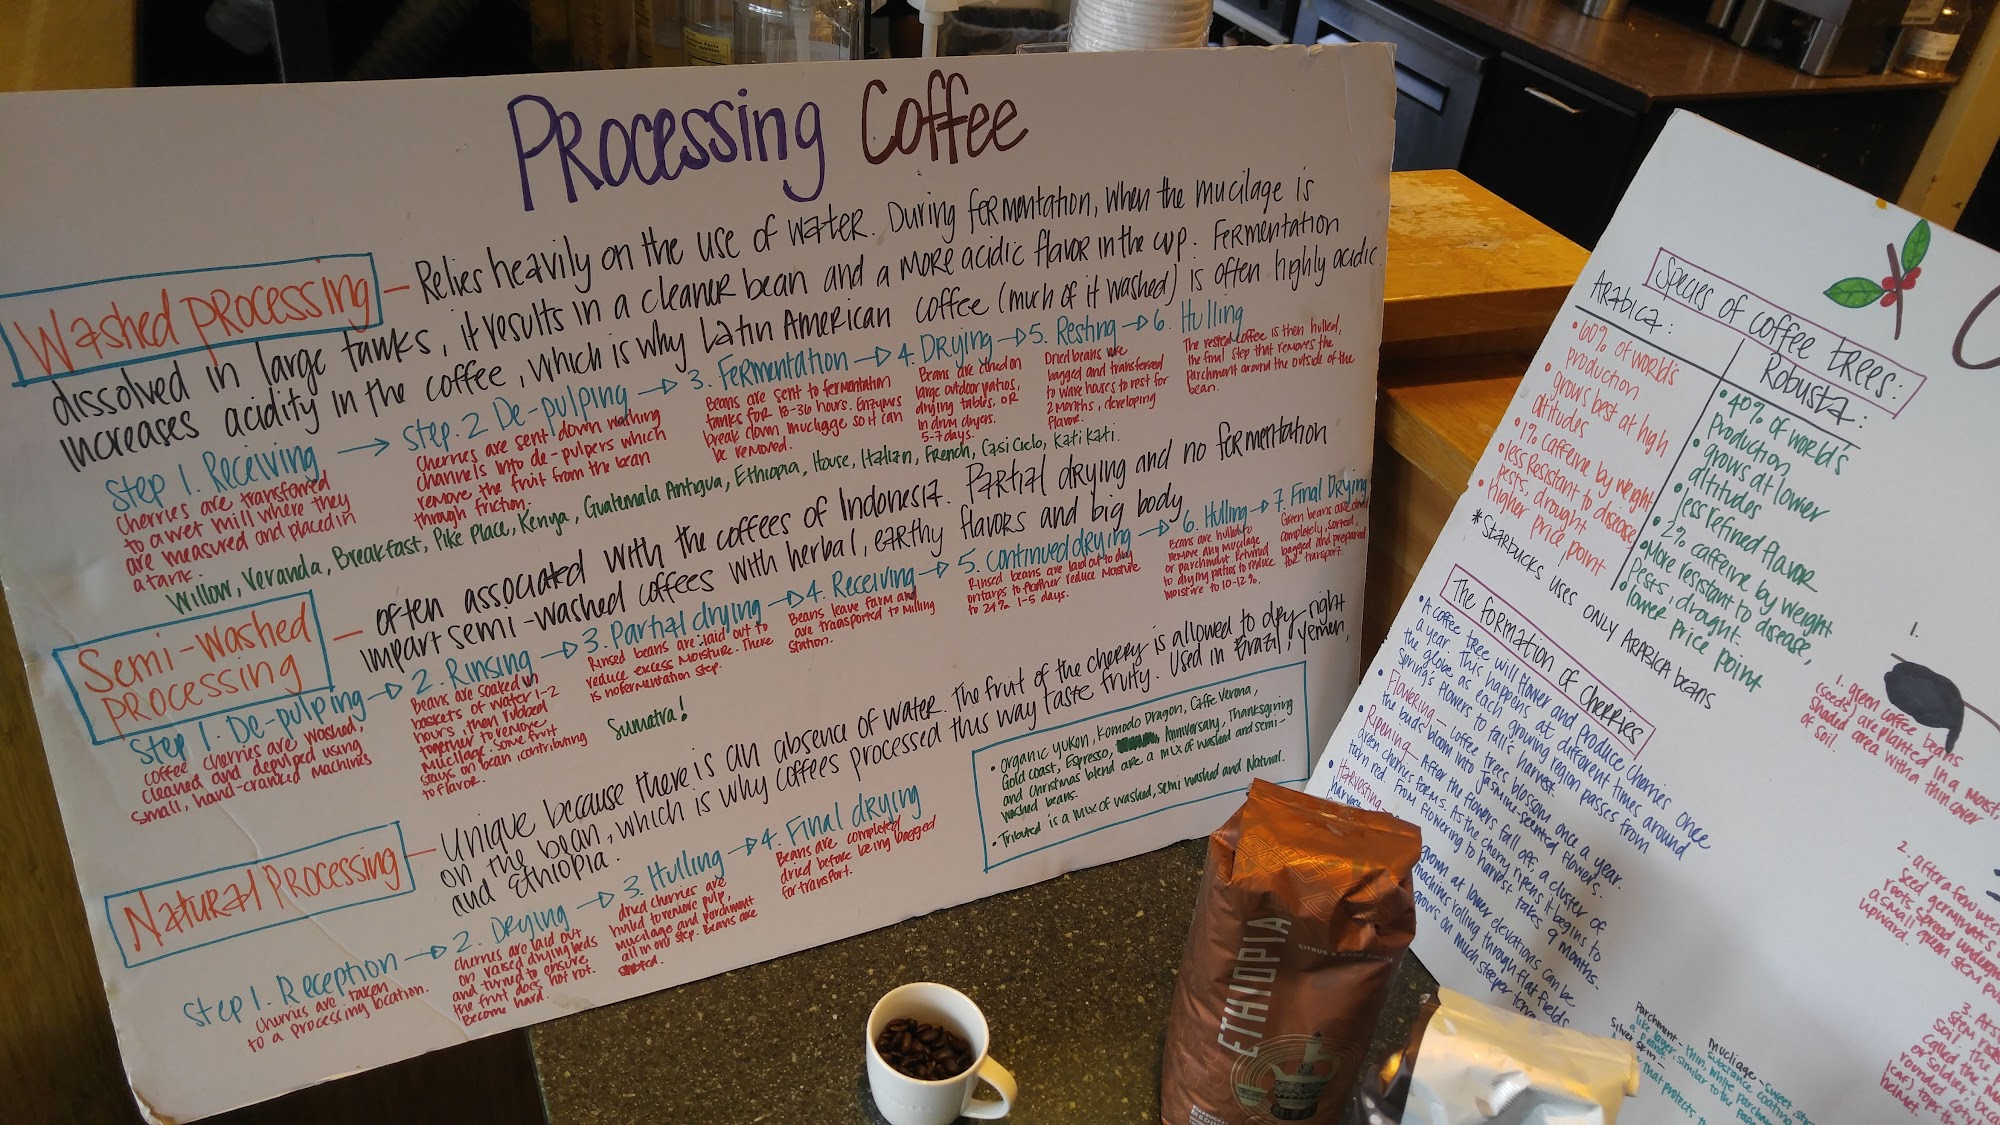 Processing Coffee
Washed Processing — Relies heavily on the use of water. During fermentation, when the mucilage is
dissolved in large tanks, it results in a cleaner bean and a more acidic flavor in the cup. Fermentation
increases acidity in the coffee, which is why Latin American coffee (much of it washed) is often highly acidic.
Step 1. Receiving → Step. 2 De-pulping → 3. Fermentation → 4. Drying → 5. Resting → 6. Hulling
Cherries are transferred
to a wet mill where they
are measured and placed in
a tank.
Cherries are sent down washing
channels into de-pulpers which
remove the fruit from the bean
through friction.
Beans are sent to fermentation
tanks for 18-36 hours. Enzymes
break down mucilage so it can
be removed.
Beans are dried on
large outdoor patios,
drying tables, or
in drum dryers.
5-7 days.
Dried beans are
bagged and transferred
to warehouses to rest for
2 months, developing
flavor.
The rested coffee is then hulled,
the final step that removes the
parchment around the outside of the
bean.
Willow, Veranda, Breakfast, Pike Place, Kenya, Guatemala Antigua, Ethiopia, House, Italian, French, Casi Cielo, Kati Kati.
Semi-Washed
Processing
— often associated with the coffees of Indonesia. Partial drying and no fermentation
impart semi-washed coffees with herbal, earthy flavors and big body
Step 1. De-pulping → 2. Rinsing → 3. Partial drying → 4. Receiving → 5. Continued drying → 6. Hulling → 7. Final Drying
coffee cherries are washed,
cleaned and depulped using
small, hand-cranked machines
Beans are soaked in
baskets of water 1-2
hours, then rubbed
together to remove
mucilage. Some fruit
stays on bean contributing
to flavor.
Rinsed beans are laid out to
reduce excess moisture. There
is no fermentation step.
Beans leave farm and
are transported to milling
station.
Rinsed beans are laid out to dry
on tarps to further reduce moisture
to 24% 1-5 days.
Beans are hulled to
remove any mucilage
or parchment. Returned
to drying patios to reduce
moisture to 10-12%.
Green beans are dried
completely, sorted,
bagged and prepared
for transport.
Sumatra!
Natural Processing — Unique because there is an absence of water. The fruit of the cherry is allowed to dry right
on the bean, which is why coffees processed this way taste fruity. Used in Brazil, Yemen,
and Ethiopia.
Step 1. Reception → 2. Drying → 3. Hulling → 4. Final drying
cherries are taken
to a processing location.
cherries are laid out
on raised drying beds
and turned to ensure
the fruit does not rot.
Become hard.
dried cherries are
hulled to remove pulp,
mucilage and parchment
all in one step. Beans are
Beans are completely
dried before being bagged
for transport.
• Organic yukon, Komodo Dragon, Caffe Verona,
Gold coast, Espresso, Anniversary, Thanksgiving
and Christmas blend are a mix of washed and semi-
washed beans.
• Tributed is a mix of washed, semi washed and Natural.
Species of coffee trees:
Arabica:
• 60% of world's
production
• grows best at high
altitudes
• 1% caffeine by weight
• less resistant to disease
pests, drought
• higher price point
Robusta:
• 40% of world's
production
• grows at lower
altitudes
• less refined flavor
• 2% caffeine by weight
• More resistant to disease,
pests, drought.
• lower price point
*Starbucks uses only Arabica beans
The formation of cherries
• A coffee tree will flower and produce cherries once
a year. This happens at different times around
the globe as each growing region passes from
spring's flowers to fall's harvest.
• Flowering - coffee trees blossom once a year.
the buds bloom into jasmine-scented flowers.
• Ripening - After the flowers fall off, a cluster of
green cherries forms. As the cherry ripens, it begins to
turn red. From flowering to harvest takes 9 months.
• Harvesting
grown at lower elevations can be
machines rolling through flat fields
grows on much steeper
Parchment - thin,
like layer, similar to the
Silver skin
that protects
Mucilage - sweet,
substance coating
1.
1. green coffee beans
(seeds) are planted in a moist,
shaded area with a thin cover
of soil.
2. after a few
seed germinates
roots spread
a small green stem
upward.
3. At
called the
or soldier,
rounded
leaf) tops the
helmet.
ETHIOPIA